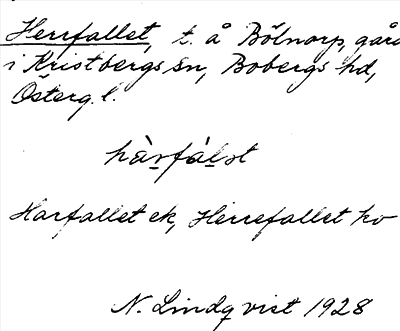 Herrfallet, t. å Bölnorp, gård
i Kristbergs sn, Bobergs hd,
Österg. l.
hàrfálət
Harfallet ek, Herrefallet ko
N. Lindqvist 1928